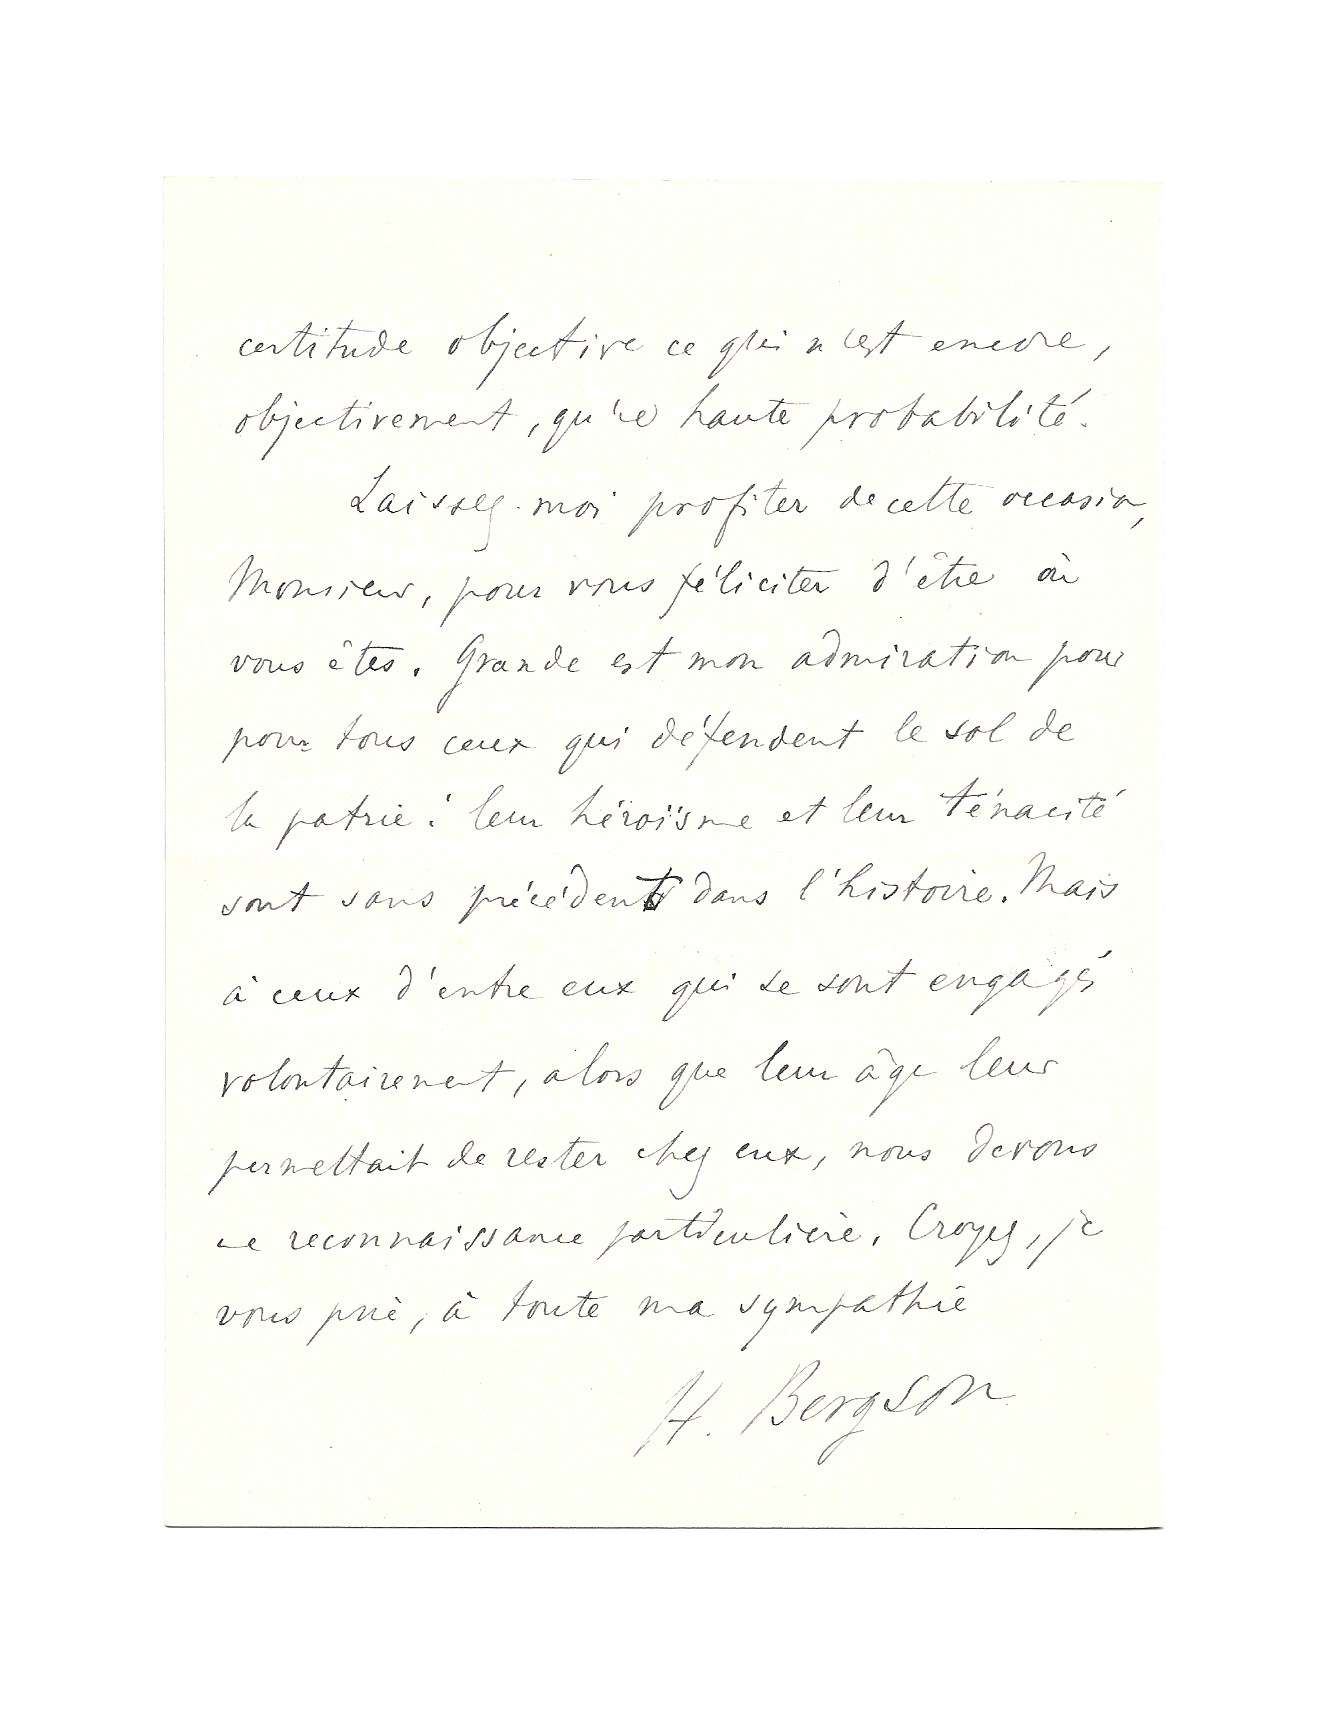 certitude objective ce qui n'est encore,
objectivement, qu'une haute probabilité.
Laissez-moi profiter de cette occasion,
Monsieur, pour vous féliciter d'être où
vous êtes. Grande est mon admiration pour
pour tous ceux qui défendent le sol de
la patrie : leur héroïsme et leur ténacité
sont sans précédent dans l'histoire. Mais
à ceux d'entre eux qui se sont engagés
volontairement, alors que leur âge leur
permettait de rester chez eux, nous devons
une reconnaissance particulière. Croyez, je
vous prie, à toute ma sympathie
H. Bergson